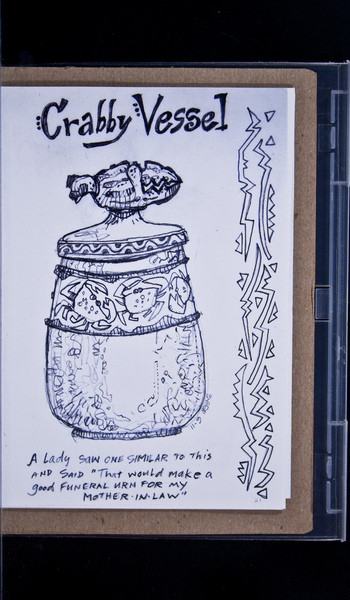 Crabby Vessel
A Lady SAW ONE SIMILAR TO This
AND SAID "That would make a
good FUNERAL URN FOR MY
MOTHER-IN-LAW"